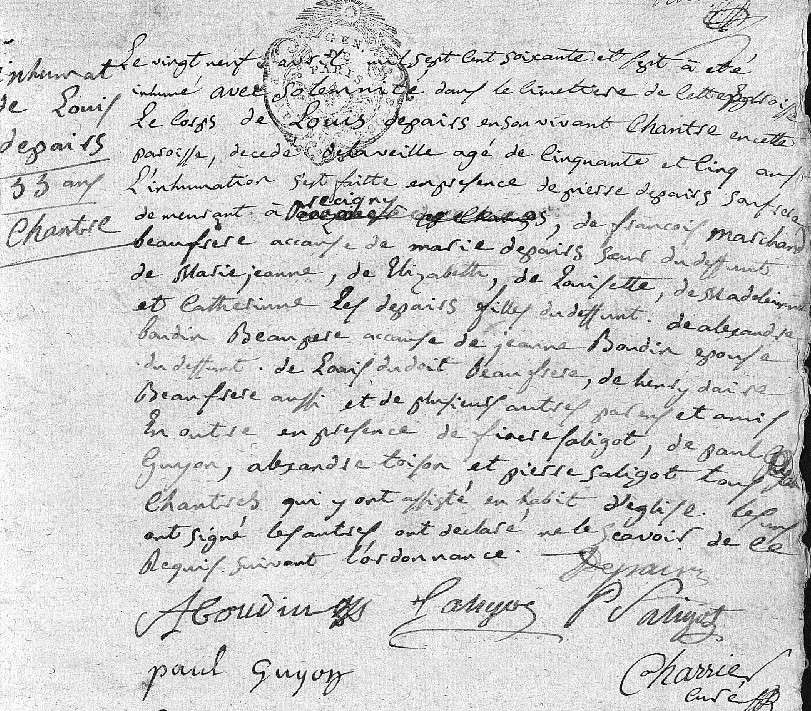 inhumat
de Louis
depairs
55 ans
Chantre
Le vingt neuf avril mil sept cent soixante et sept à eté
inhumé avec solemnité dans le cimettere de cette
Le corps de Louis depairs en son vivant Chantre en cette
paroisse, decedé de la veille agé de cinquante et cinq ans
L'inhumation sest faitte en presence de pierre depairs son frere
demeurant à recigny
, de francois marchand
beaufrere accause de marie depairs sœur du deffunt
de Marie jeanne, de Elizabethe, de Louisette, de Madeleinne
et Catherinne Les depairs filles du deffunt. de alexandre
boudin Beaupere accause de jeanne Boudin epouse
du deffunt. de Louis dudoit beaufrere, de henry daire
Beaufrere aussi et de plusieurs autres parens et amis
En outre en presence de saligot, de paul
Guyon, alexandre toison et pierre saligot tous
Chantres qui y ont assisté en habit d'eglise. Les uns
ont signé les autres ont declaré ne le scavoir de ce
Requis suivant l'ordonnance.
Depairs
A boudin P Saligot
paul Guyon
Charrier
curé